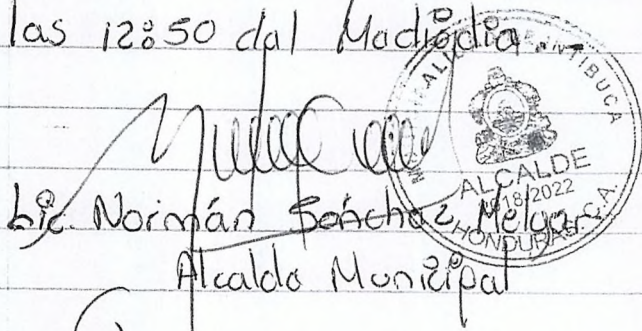 las 12:50 del Mediodia
Lic. Normán Sánchez Melgar
Alcalde Municipal
INTIBUCA
ALCALDE
2018-2022
HONDURAS, C.A.